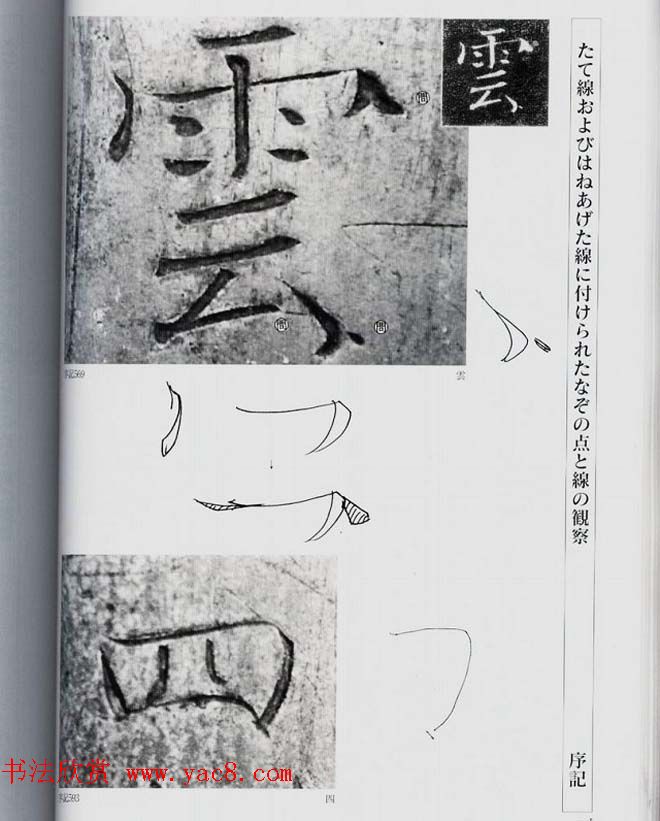 たて線およびはねあげた線に付けられたなぞの点と線の観察
序記
雲
雲
序記569
雲
四
书法欣赏 www.yac8.com
序記593
四